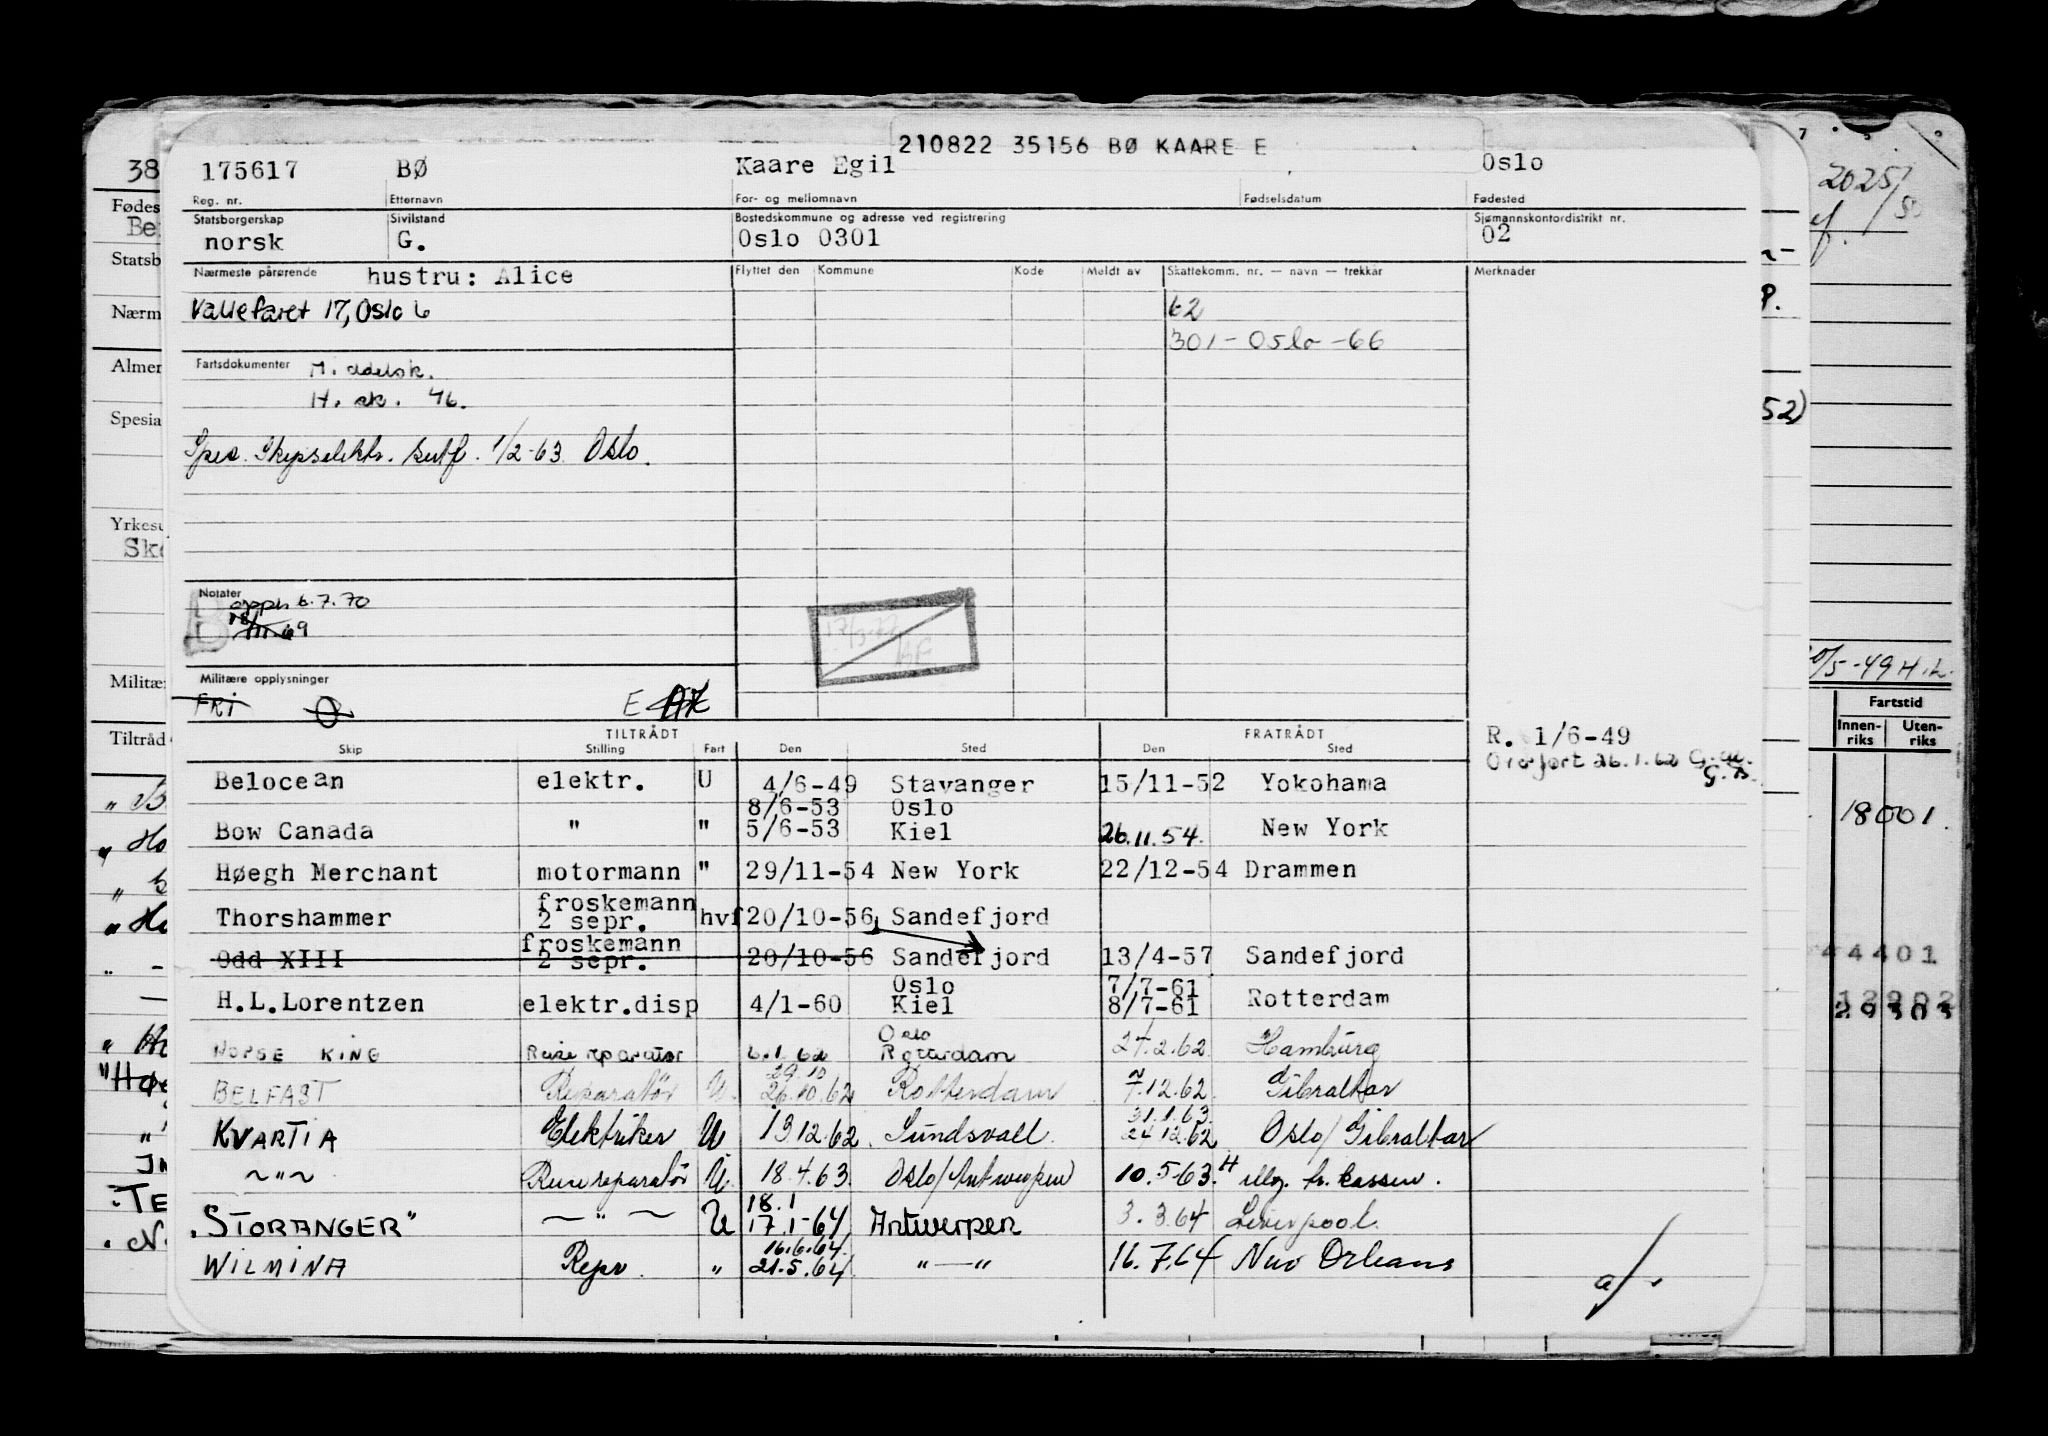 210822 35156 BØ KAARE E
175617 BØ Kaare Egil Oslo
Reg. nr. Etternavn For- og mellomnavn Fødselsdatum Fødested
Statsborgerskap Sivilstand Bostedskommune og adresse ved registrering Sjømannskontordistrikt nr.
norsk G. Oslo 0301 02
Nærmeste pårørende hustru: Alice Flyttet den Kommune Kode Meldt av Skattekomm. nr. — navn — trekkår Merknader
Vallefaret 17, Oslo 6 62
301 - Oslo - 66
Fartsdokumenter M. addelsk.
H. sk. 46.
Spes. Skipselektr. sertf. 1/2-63 Oslo.
Notater
6.7.70
69
Militære opplysninger
FRI E
TILTRÅDT FRATRÅDT
Skip Stilling Fart Den Sted Den Sted
R. 1/6-49
Overført 26.1.62
Belocean elektr. U 4/6-49 Stavanger 15/11-52 Yokohama
8/6-53 Oslo
Bow Canada " " 5/6-53 Kiel 26.11.54. New York
Høegh Merchant motormann " 29/11-54 New York 22/12-54 Drammen
froskemann
Thorshammer 2 sepr. hvf 20/10-56 Sandefjord
froskemann
Odd XIII 2 sepr. 20/10-56 Sandefjord 13/4-57 Sandefjord
Oslo 7/7-61
H.L.Lorentzen elektr.disp 4/1-60 Kiel 8/7-61 Rotterdam
Oslo
NORSE KING Reisereparatør 6.1.62 Rotterdam 27.2.62 Hamburg
29.10
BELFAST Reparatör U. 26.10.62 Rotterdam 7.12.62 Gibraltar
31.1.63
KVARTIA Elektriker U 13.12.62. Sundsvall. 24.12.62 Oslo/Gibraltar
~"~ Reisereparatör U. 18.4.63. Oslo/Antwerpen 10.5.63.
18.1
"STORANGER" — " — U 17.1-64 Antwerpen 3.3.64 Liverpool.
16.6.64.
WILMINA Repr. " 21.5.64. "—" 16.7.64 New Orleans
38
Fødes
Be
Statsb
Nærm
Almen
Spesia
Yrkesu
Sk
Militæ
Tiltråd
2025/
52)
/5-49 H.
Fartstid
Innen-riks Uten-riks
18001.
44401